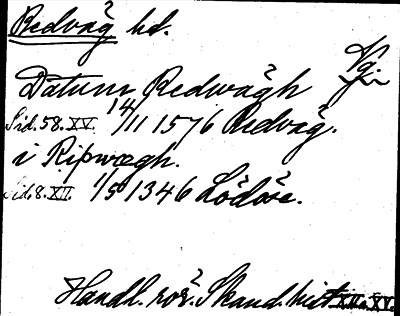 Redväg hd.
Vg.
Datum Redwægh
Sid. 58. XV. 14/11 1576 Redväg.
i Ripwægh.
Sid. 8. XII. 1/5 1346 Lödöse.
Handl. rör. Skand. hist XII o. XV.